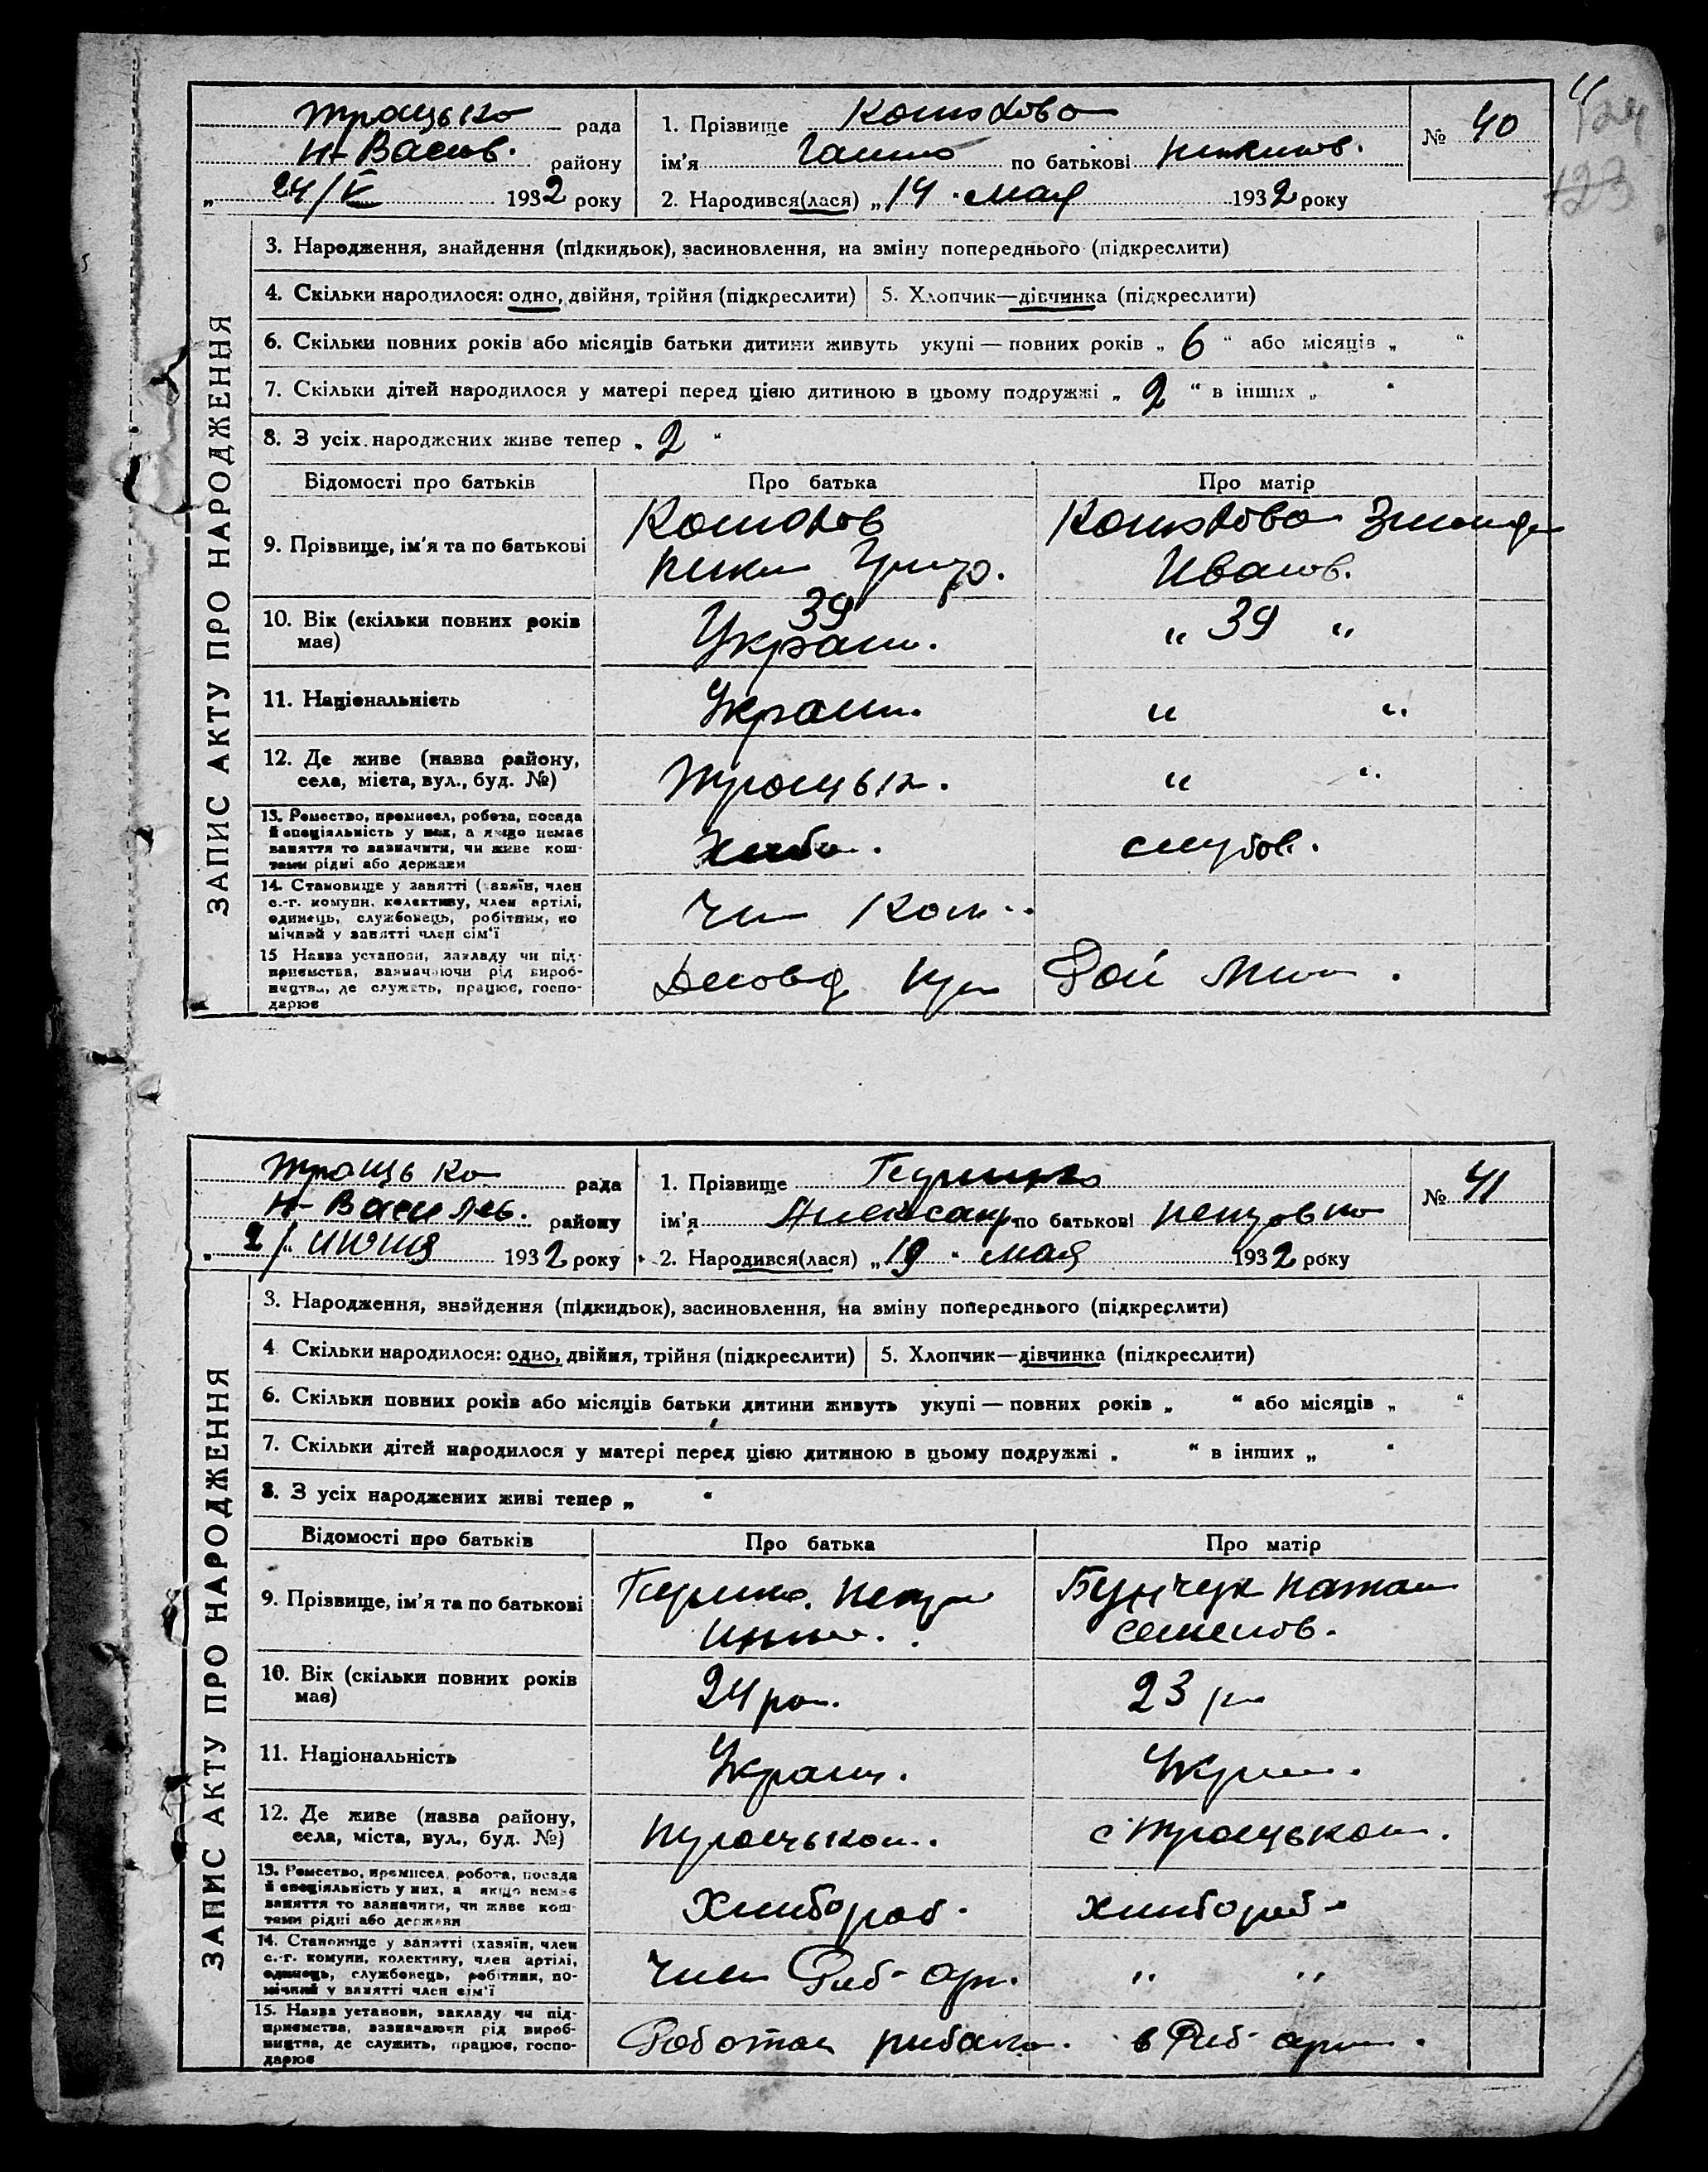 124
123
Троцько рада
Н-Васил. району
„ 24/V 1932 року
1. Прізвище
ім'я по батькові
2. Народився(лася) „14" мая 1932 року
№ 40
ЗАПИС АКТУ ПРО НАРОДЖЕННЯ
3. Народження, знайдення (підкидьок), засиновлення, на зміну попереднього (підкреслити)
4. Скільки народилося: одно, двійня, трійня (підкреслити) 5. Хлопчик—дівчинка (підкреслити)
6. Скільки повних років або місяців батьки дитини живуть укупі — повних років „ 6 " або місяців „ "
7. Скільки дітей народилося у матері перед цією дитиною в цьому подружжі „ 2 " в інших „ "
8. З усіх народжених живе тепер „ 2 "
Відомості про батьків Про батька Про матір
9. Прізвище, ім'я та по батькові
Иванов.
10. Вік (скільки повних років
має)
39
Украин.
„ 39 „
11. Національність Украин. „ „
12. Де живе (назва району,
села, міста, вул., буд. №)
Троцьк. „ „
13. Ремество, промисел, робота, посада
й спеціяльність у них, а якщо немає
заняття то зазначити, чи живе кош-
тами рідні або держави
14. Становище у занятті (хазяїн, член
с.-г. комуни, колективу, член артілі,
одинець, службовець, робітник, по
мічний у занятті член сім'ї
15 Назва установи, закладу чи під-
приємства, зазначаючи рід вироб-
ництва, де служить, працює, госпо-
дарює
Троцько рада
Н-Василев. району
„ 2/" июня 1932 року
1. Прізвище
ім'я Александр по батькові Петровно
2. Народився(лася) „19" мая 1932 року
№ 41
ЗАПИС АКТУ ПРО НАРОДЖЕННЯ
3. Народження, знайдення (підкидьок), засиновлення, на зміну попереднього (підкреслити)
4 Скільки народилося: одно, двійня, трійня (підкреслити) 5. Хлопчик—дівчинка (підкреслити)
6. Скільки повних років або місяців батьки дитини живуть укупі — повних років „ " або місяців „ "
7. Скільки дітей народилося у матері перед цією дитиною в цьому подружжі „ " в інших „ "
8. З усіх народжених живі тепер „ "
Відомості про батьків Про батька Про матір
9. Прізвище, ім'я та по батькові
Бунчук Натал
Семенов.
10. Вік (скільки повних років
має)
24 ро. 23 р
11. Національність Украин. Укр.
12. Де живе (назва району,
села, міста, вул., буд. №)
Троцьком. с Троцьком.
13. Ремество, промисел, робота, посада
й спеціяльність у них, а якщо немає
заняття то зазначити, чи живе кош-
тами рідні або держави
Хлибороб. хлибороб.
14. Становище у занятті (хазяїн, член
с.-г. комуни, колективу, член артілі,
одинець, службовець, робітник, по-
мічний у занятті член сім'ї
Член Риб-арт. „ „
15. Назва установи, закладу чи під-
приємства, зазначаючи рід вироб-
ництва, де служить, працює, госпо-
дарює
Роботає рибалко. в Риб арт.